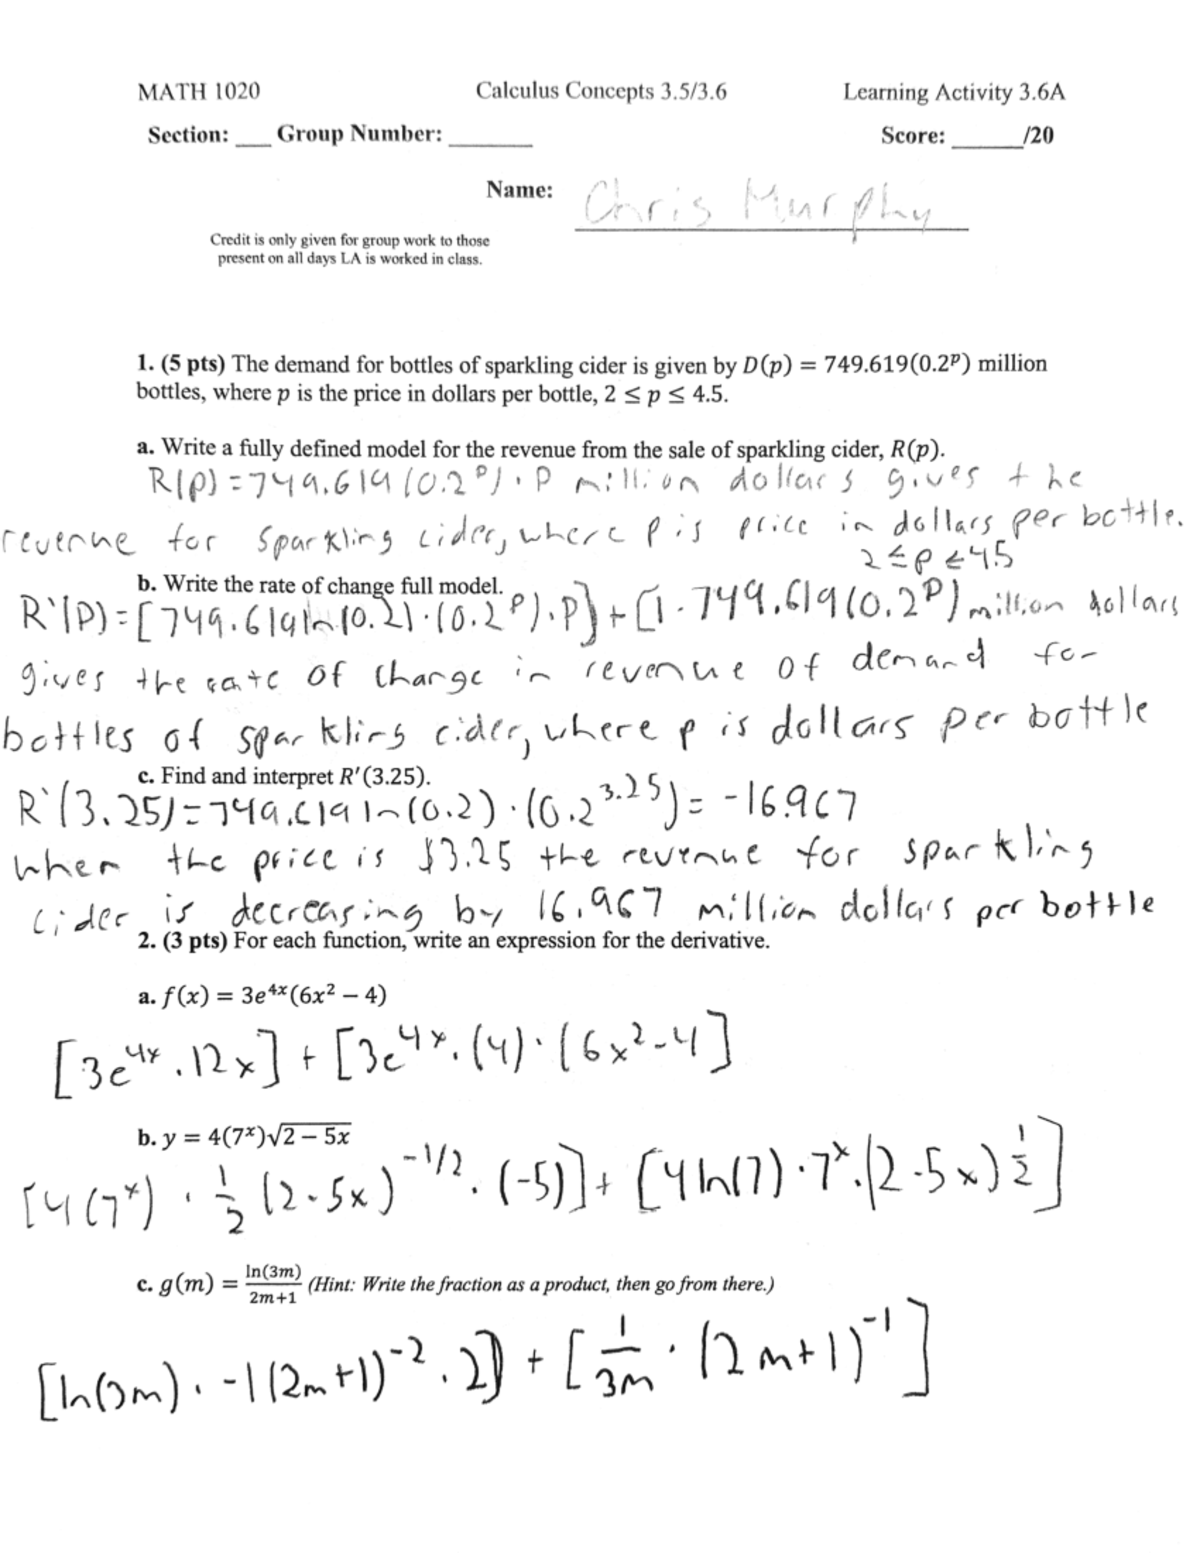 MATH 1020 Calculus Concepts 3.5/3.6 Learning Activity 3.6A
Section: ___ Group Number: _______ Score: ______/20
Name: Chris Murphy
Credit is only given for group work to those
present on all days LA is worked in class.
1. (5 pts) The demand for bottles of sparkling cider is given by D(p) = 749.619(0.2^p) million
bottles, where p is the price in dollars per bottle, 2 ≤ p ≤ 4.5.
a. Write a fully defined model for the revenue from the sale of sparkling cider, R(p).
R(p) = 749.619(0.2^p) · p million dollars gives the
revenue for sparkling cider, where p is price in dollars per bottle.
2 ≤ p ≤ 4.5
b. Write the rate of change full model.
R'(p) = [749.619 ln(0.2) · (0.2^p) · p] + [1 · 749.619(0.2^p) million dollars
gives the rate of change in revenue of demand for
bottles of sparkling cider, where p is dollars per bottle
c. Find and interpret R'(3.25).
R'(3.25) = 749.619 ln(0.2) · (0.2^3.25) = -16.967
when the price is $3.25 the revenue for sparkling
cider is decreasing by 16.967 million dollars per bottle
2. (3 pts) For each function, write an expression for the derivative.
a. f(x) = 3e^4x(6x² − 4)
[3e^4x · 12x] + [3e^4x · (4) · (6x² - 4]
b. y = 4(7^x)√2 − 5x
[4(7^x) · 1/2 (2-5x)^-1/2 · (-5)] + [4 ln(7) · 7^x · (2-5x)^1/2]
c. g(m) = ln(3m)/2m+1 (Hint: Write the fraction as a product, then go from there.)
[ln(3m) · -1(2m+1)^-2 · 2] + [1/3m · (2m+1)^-1]